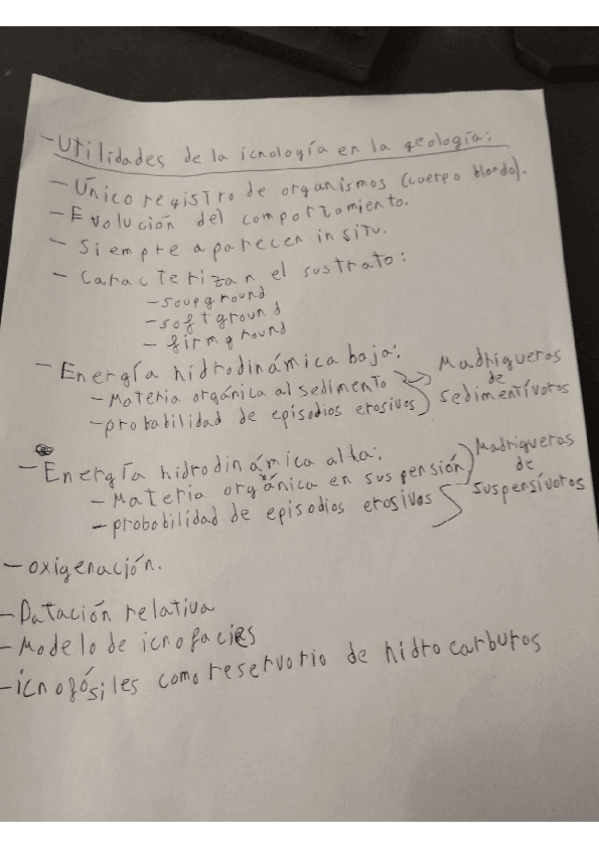 -Utilidades de la icnología en la geología:
- Único registro de organismos (cuerpo blando).
- Evolución del comportamiento.
- Siempre aparecen in situ.
- Caracterizan el sustrato:
-soupground
-softground
- firmground
- Energía hidrodinámica baja:
- Materia orgánica al sedimento
-probabilidad de episodios erosivos
Madrigueras
de
sedimentívoros
- Energía hidrodinámica alta:
- Materia orgánica en suspensión
- probabilidad de episodios erosivos
Madrigueras
de
suspensívoros
- oxigenación.
-Datación relativa
- Modelo de icnofacies
-icnofósiles como reservorio de hidrocarburos